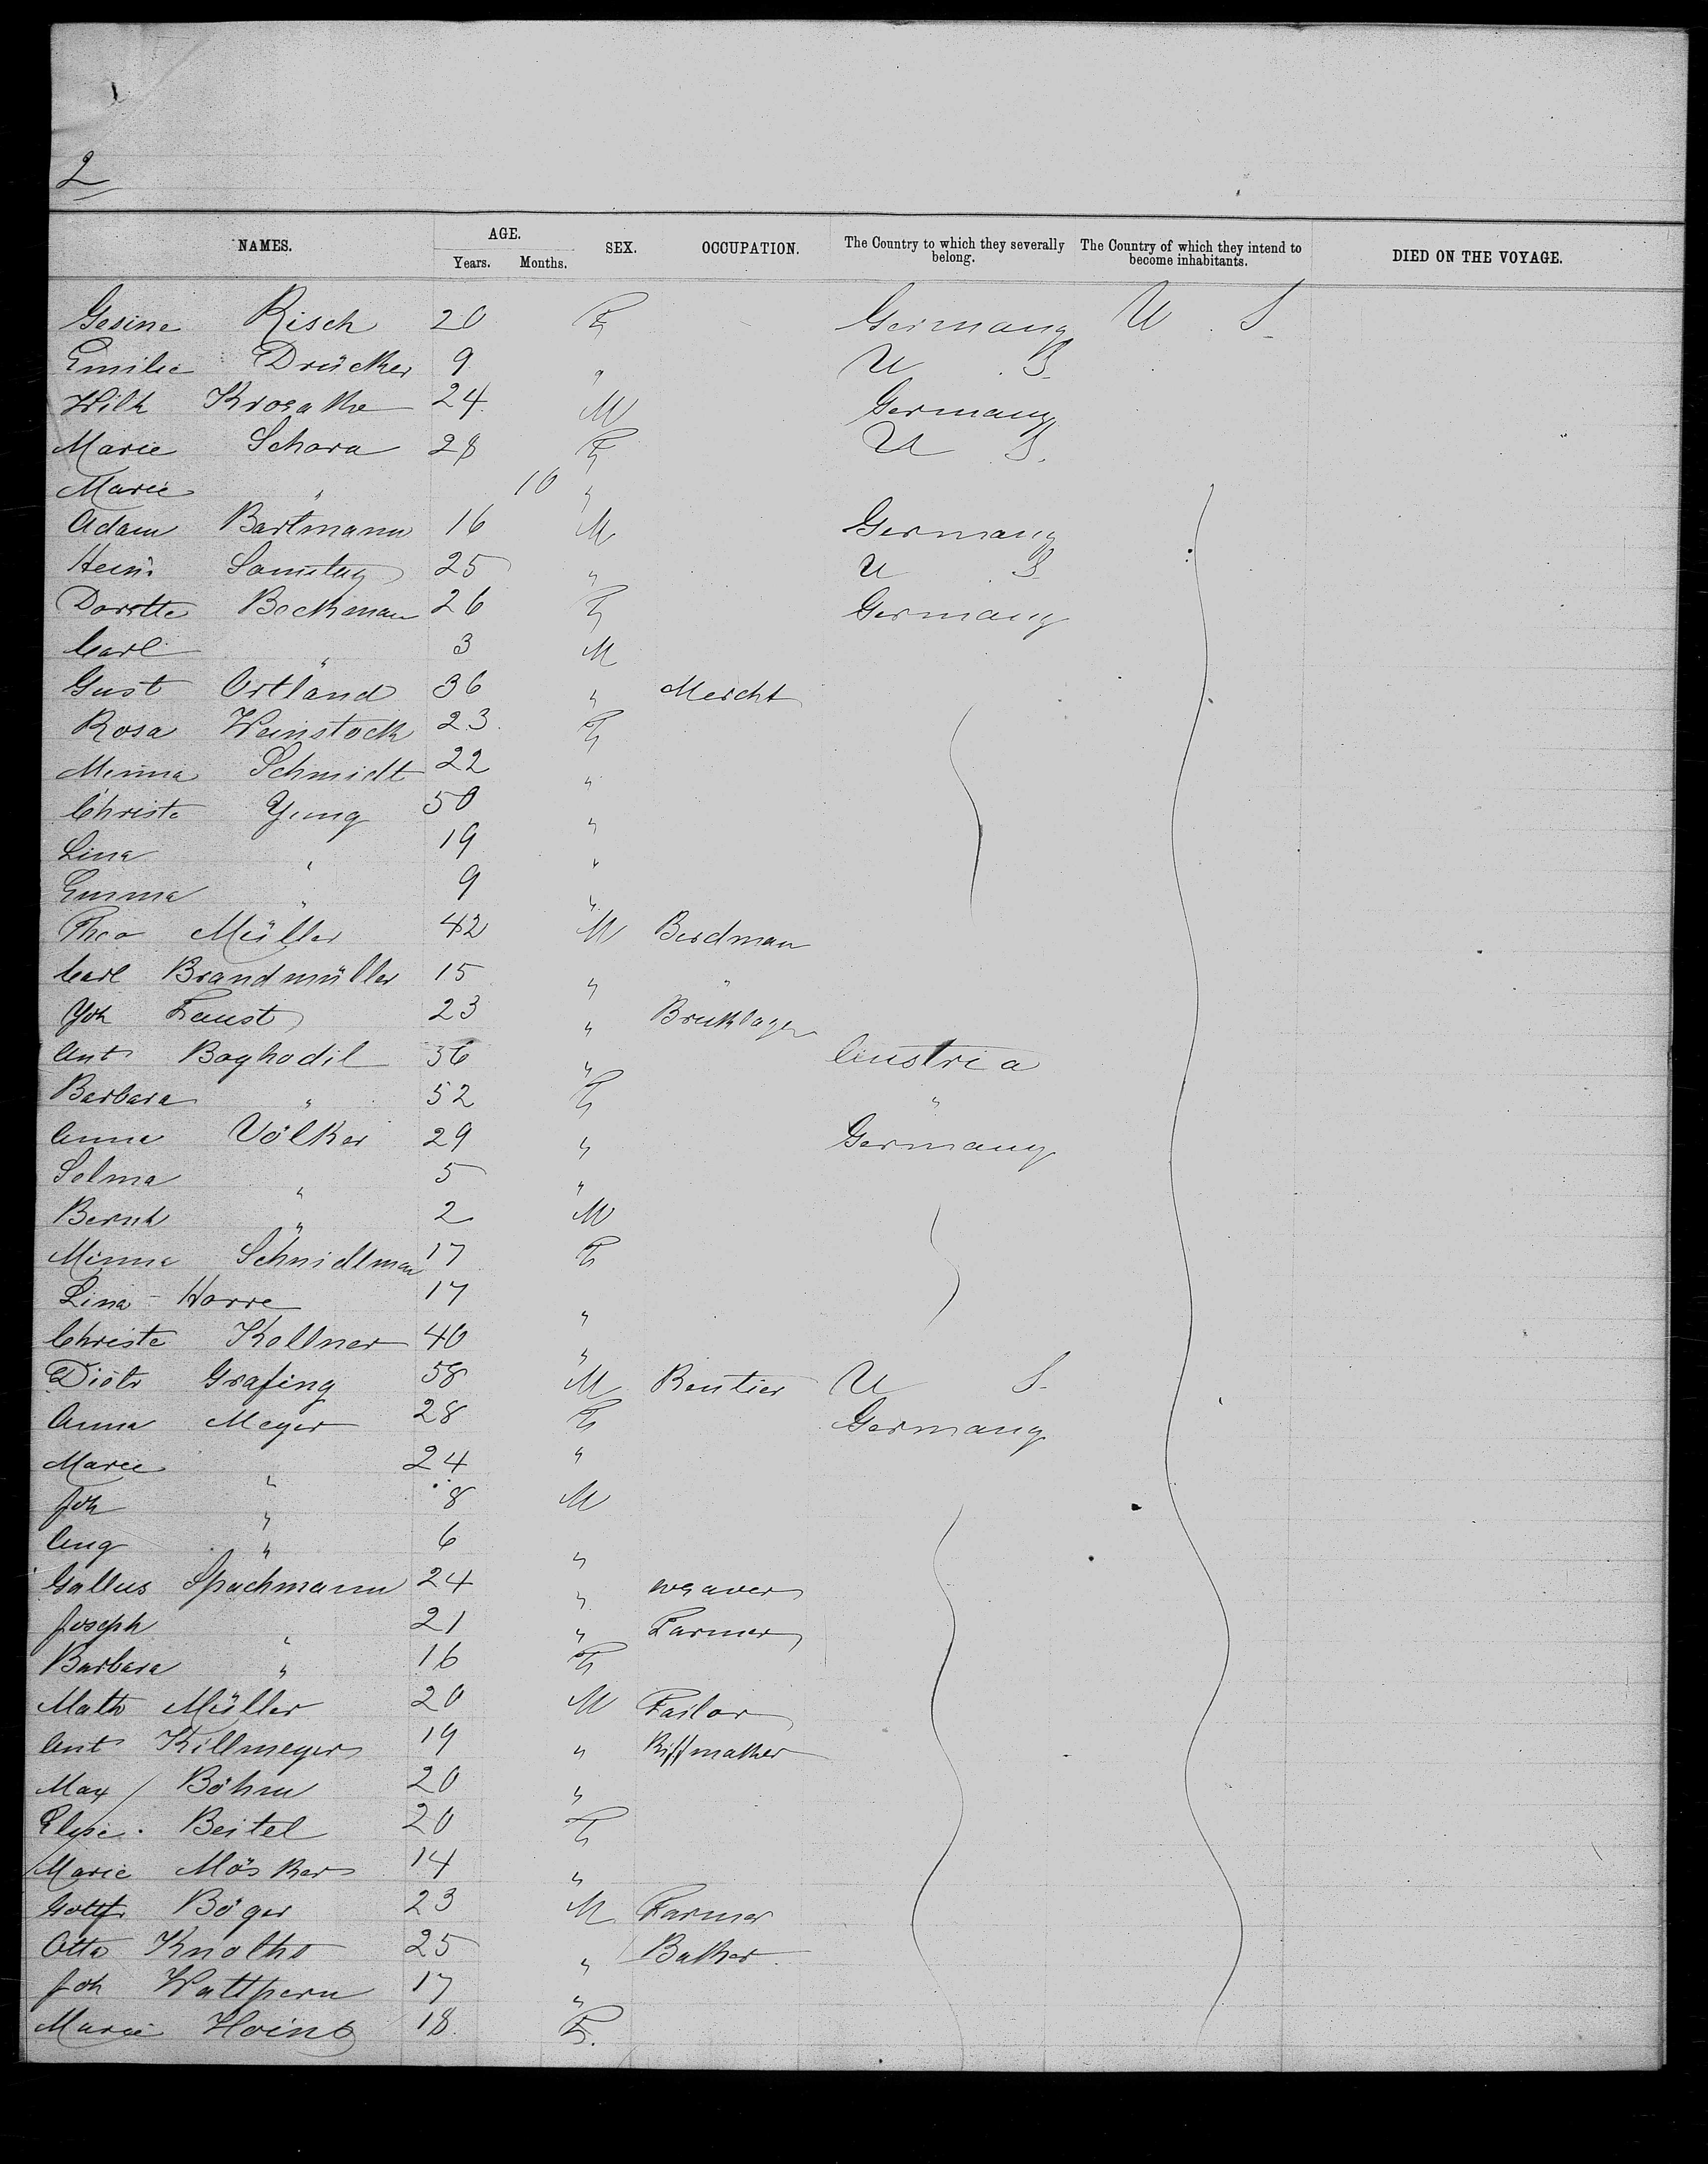 2
NAMES. AGE. Years. Months. SEX. OCCUPATION. The Country to which they severally belong. The Country of which they intend to become inhabitants. DIED ON THE VOYAGE.
Gesine Risch 20 F Germany U. S.
Emilie Drücker 9 " U. S.
Wilh 24 M Germany
Marie Schora 28 F U S.
Marie " 10 "
Adam Bartmann 16 M Germany
Heinr 25 " U S
Dorette Beckman 26 F Germany
Carl " 3 M
Gust Ortland 36 " Mercht
Rosa Weinstock 23 F
Minna Schmidt 22 "
Christe Yung 50 "
Lina " 19 "
Emma " 9 "
Theo Müller 42 M Birdman
Carl Brandmüller 15 " "
Joh Faust 23 "
Ant Boghodil 36 " Austria
Barbara " 52 F "
Anna Völker 29 " Germany
Selma " 5 "
Bernh " 2 M
Minna Schnidlman 17 F
Lina Horre 17 "
Christe Kollner 40 "
Diotr Grafing 58 M Rentier U S.
Anna Meyer 28 F Germany
Marie " 24 "
Joh " 8 M
Aug " 6 "
Gallus Spachmann 24 " weaver
Joseph " 21 " Farmer
Barbara " 16 F
Math Müller 20 M Tailor
Ant Killmeyer 19 "
Max Böhm 20 "
Elise Beitel 20 F
Marie Mösker 14 "
Gottfr Böger 23 M Farmer
Otto Knolho 25 " Baker
Joh Wattpern 17 "
Marie Hoins 18 F.